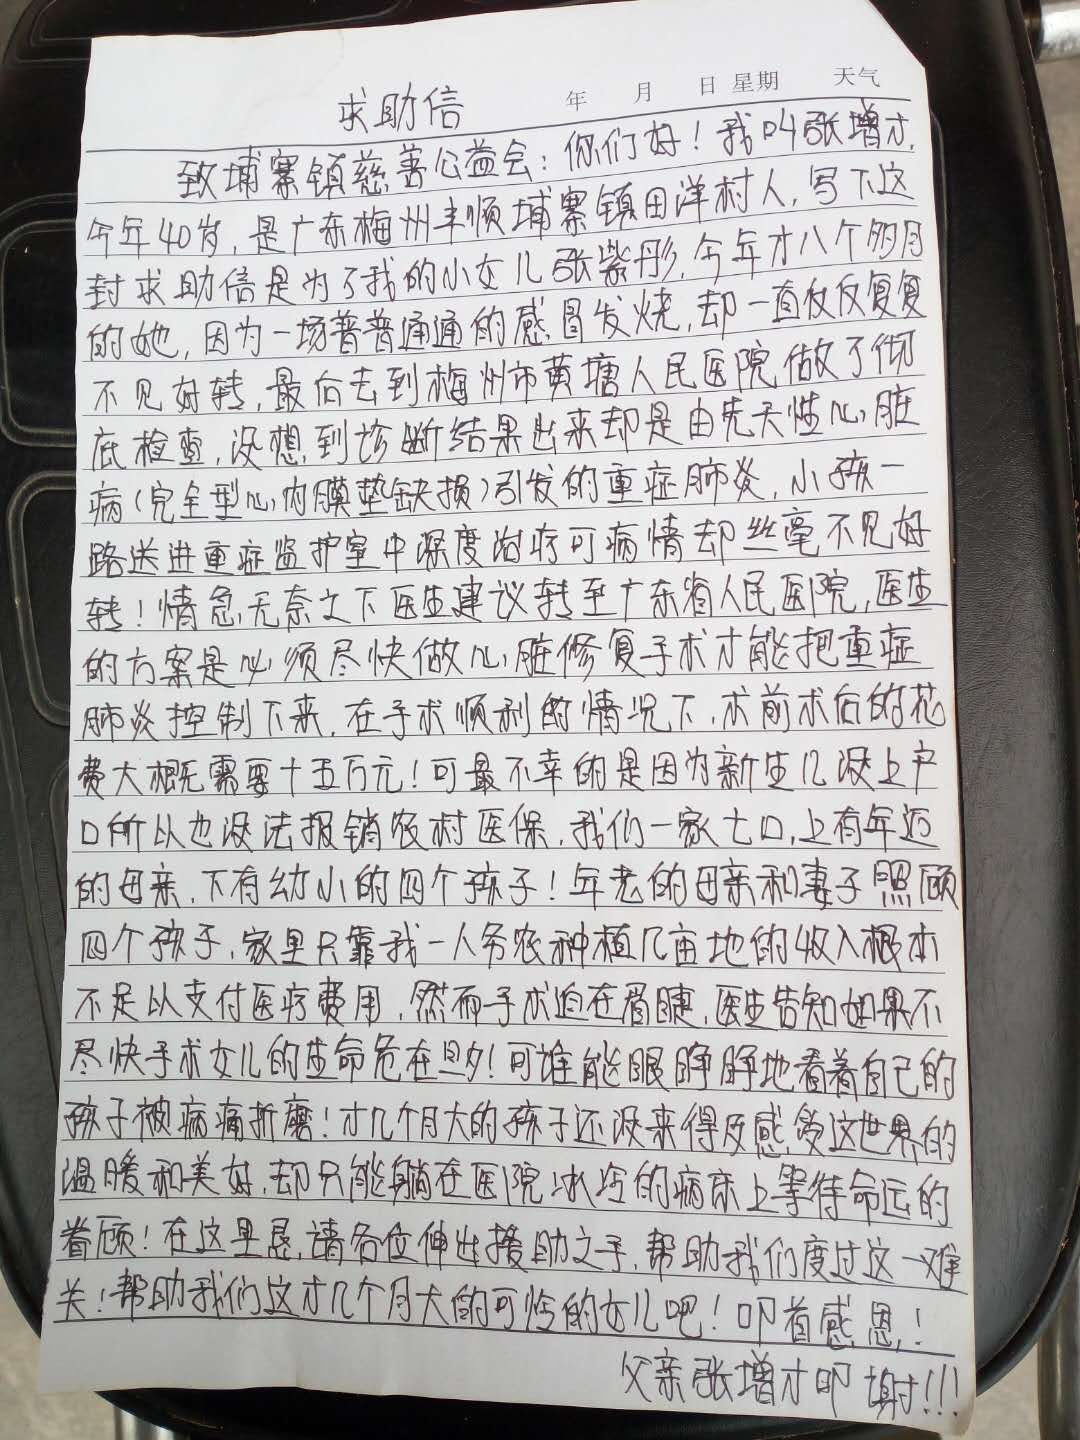 年 月 日 星期 天气
求助信
致埔寨镇慈善公益会：你们好！我叫张增才，
今年40岁，是广东梅州丰顺埔寨镇田洋村人，写下这
封求助信是为了我的小女儿张紫彤，今年才八个多月
的她，因为一场普普通通的感冒发烧，却一直反反复复
不见好转，最后去到梅州市黄塘人民医院做了彻
底检查，没想到诊断结果出来却是由先天性心脏
病（完全型心内膜垫缺损）引发的重症肺炎，小孩一
路送进重症监护室中深度治疗可病情却丝毫不见好
转！情急无奈之下医生建议转至广东省人民医院，医生
的方案是必须尽快做心脏修复手术才能把重症
肺炎控制下来，在手术顺利的情况下，术前术后的花
费大概需要十五万元！可最不幸的是因为新生儿没上户
口所以也没法报销农村医保，我们一家七口，上有年迈
的母亲，下有幼小的四个孩子！年老的母亲和妻子照顾
四个孩子，家里只靠我一人务农种植几亩地的收入根本
不足以支付医疗费用，然而手术迫在眉睫，医生告知如果不
尽快手术女儿的生命危在旦夕！可谁能眼睁睁地看着自己的
孩子被病痛折磨！才几个月大的孩子还没来得及感受这世界的
温暖和美好，却只能躺在医院冰冷的病床上等待命运的
眷顾！在这里恳请各位伸出援助之手，帮助我们度过这一难
关！帮助我们这才几个月大的可怜的女儿吧！叩首感恩！
父亲张增才叩谢!!!